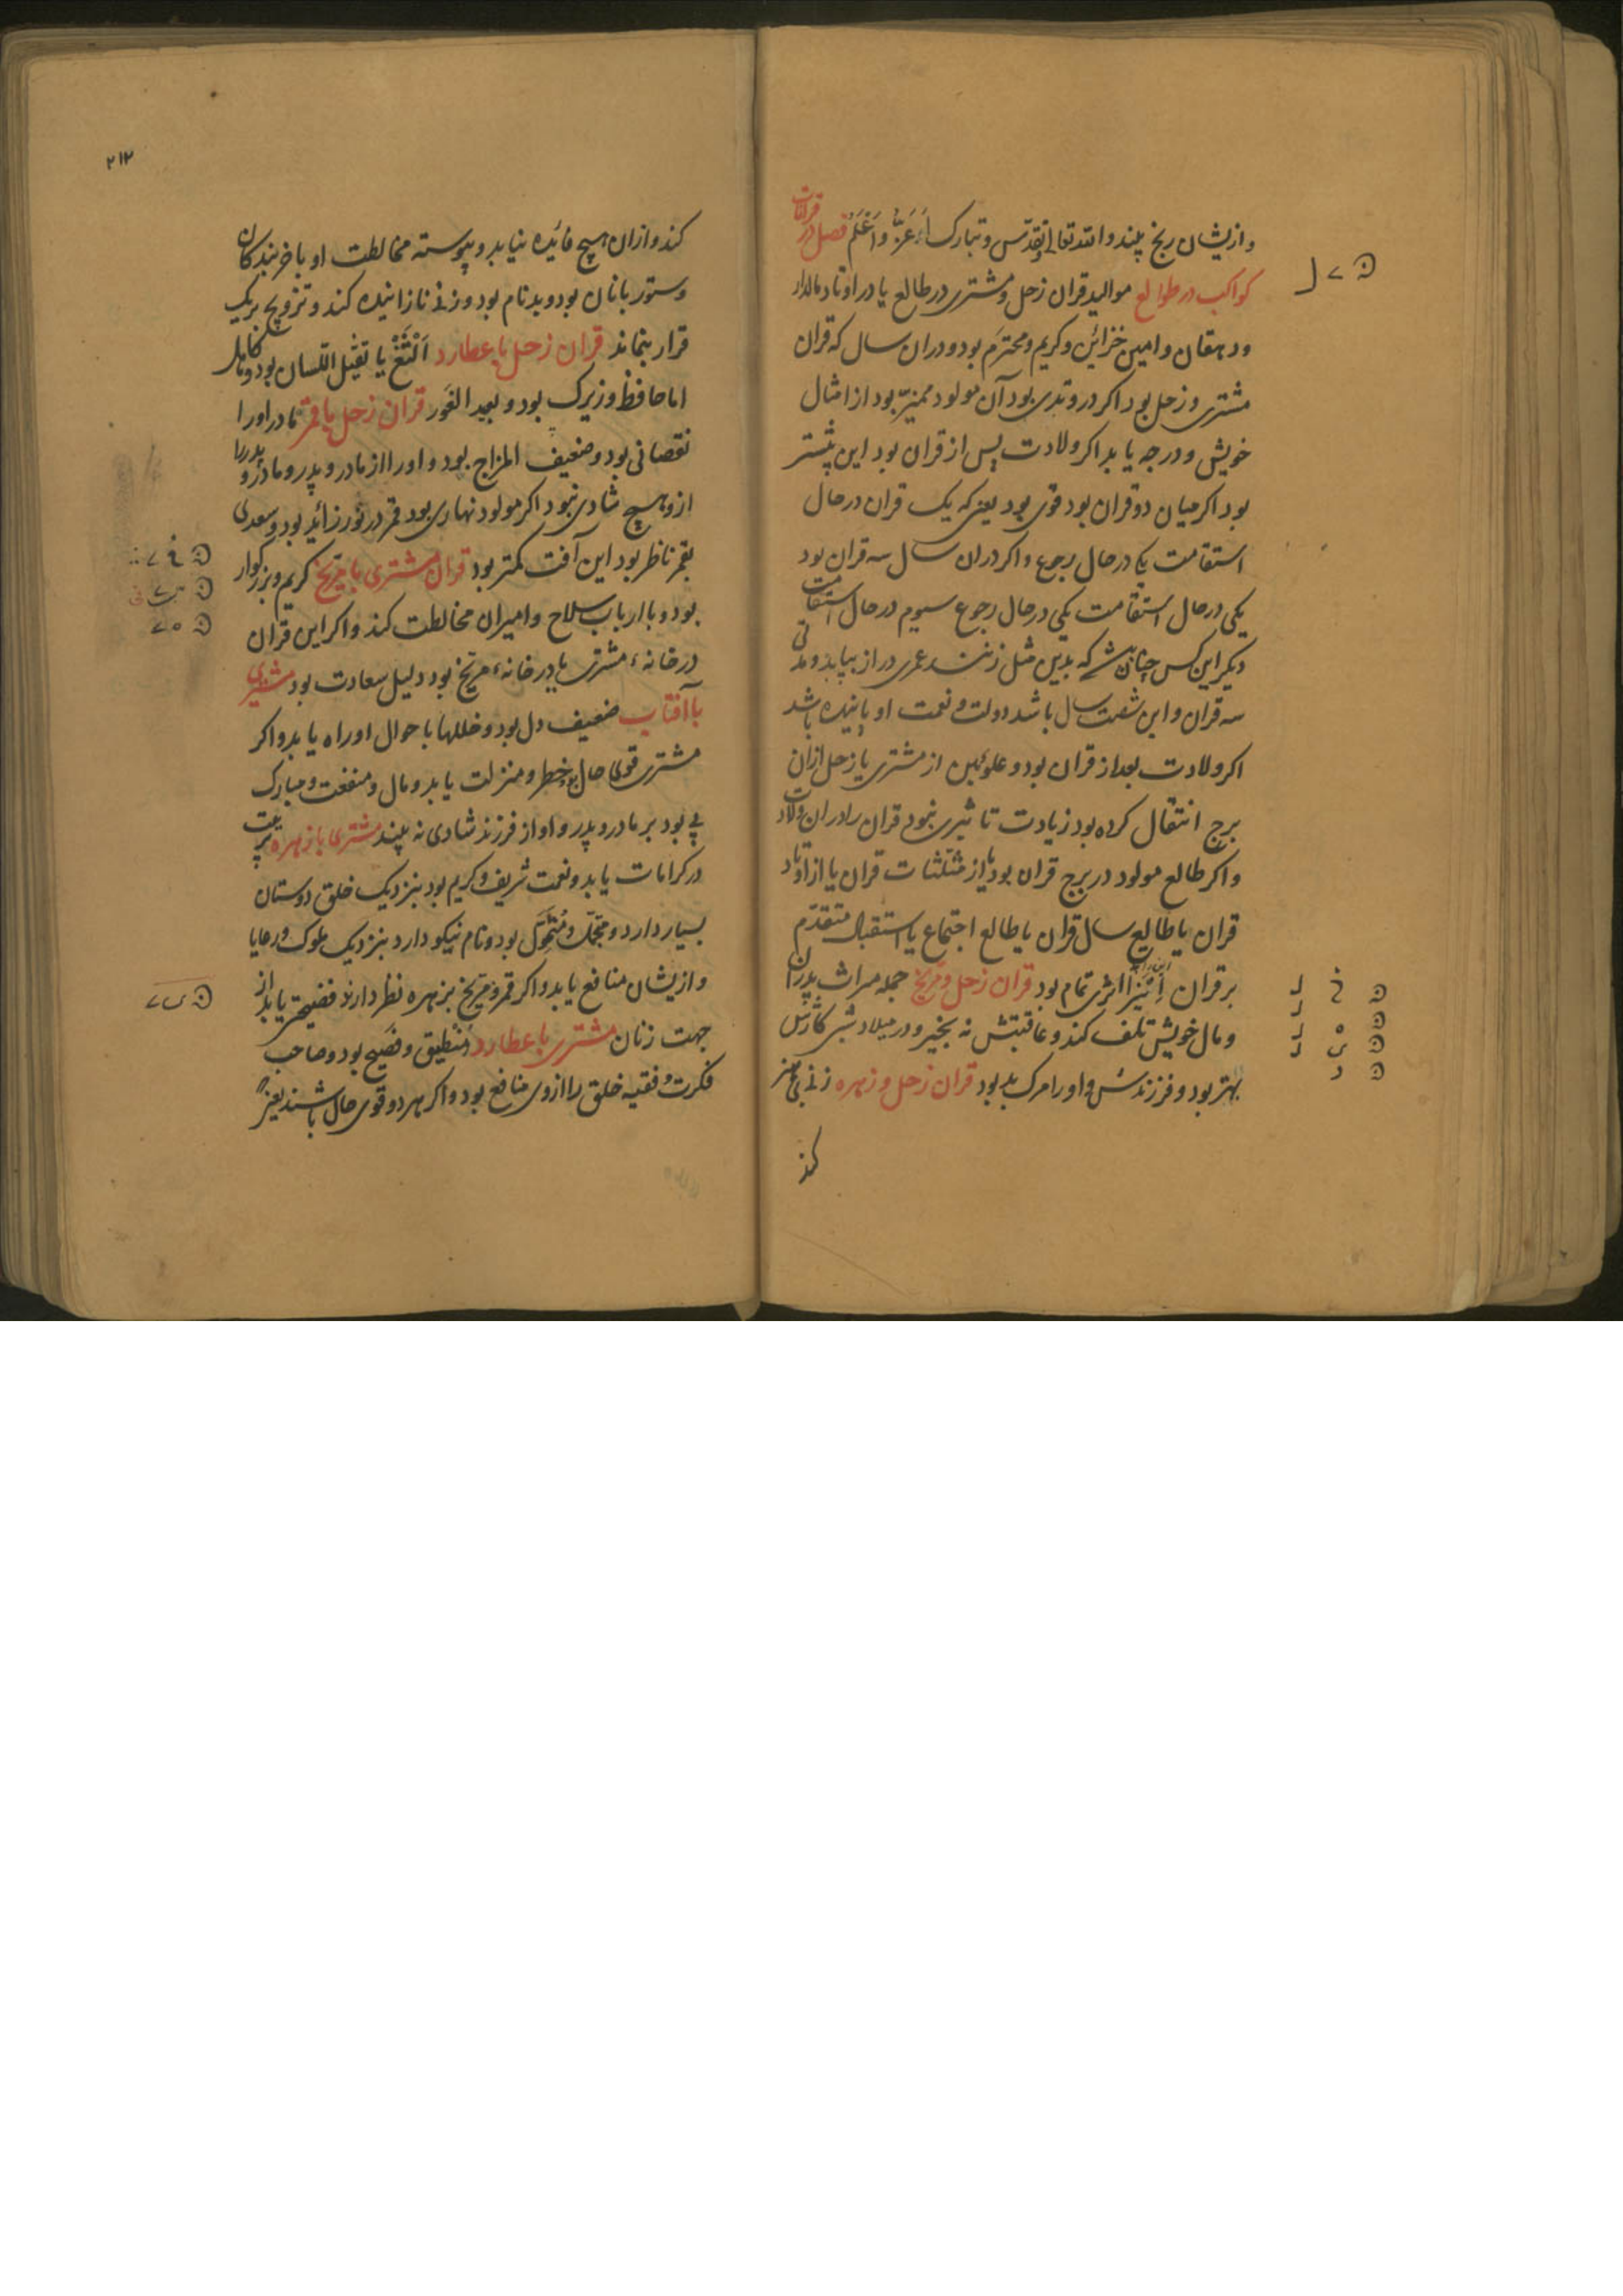 وازیشان رنج بیند والله تعالی و تقدّس و تبارک اَعَزّ وَاَعْلَمُ فصل در قرانات
کواکب در طوالع موالید قران زحل و مشتری در طالع یا در اوتاد مالدار
ودهقان وامین خزائن وکریم ومحترم بود ودران سال که قران
مشتری وزحل بود اکر در وتدی بود آن مولود ممیّز بود از امثال
خویش ودرجه یابد اکر ولادت پس از قران بود این بیشتر
بود اکر میان دو قران بود قوی بود یعنی که یک قران در حال
استقامت یکی در حال رجوع واکر دران سال سه قران بود
یکی در حال استقامت یکی در حال رجوع سیوم در حال استقامت
دیکر این کس چنان باشد که بدین مثل زنند عمری دراز بیابد ومدتی
سه قران واین شصت سال باشد دولت ونعمت او پاینده باشد
اکر ولادت بعد از قران بود وعلوئین از مشتری یا زحل ازان
برج انتقال کرده بود زیادت تاثیری نبود قران را دران ولادت
واکر طالع مولود در برج قران بود یا از مثلّثات قران یا از اوتاد
قران یا طالع سال قران یا طالع اجتماع یا استقبال متقدّم
بر قران این نیز اثری تمام بود قران زحل ومرّیخ جمله میراث پدران
ومال خویش تلف کند وعاقبتش نه بخیر ودر میلاد شبی کارش
بهتر بود وفرزندش واورا مرک بد بود قران زحل وزهره زنی بی هنر
کند
۲۱۲
کند وازان هیچ فائیده نیابد وپیوسته مخالطت او با خربندکان
وستوربانان بود وبدنام بود وزنی نازاینده کند وتزویج بریک
قرار بنماند قران زحل با عطارد اَلْثَغْ یا ثقیل اللسان بود وکاهل
اما حافظ وزیرک بود وبعید الغَور قران زحل با قمر مادر اورا
نقصانی بود وضعیف المزاج بود واورا از مادر وپدر ومادر وپدررا
ازو هیچ شادی نبود اکر مولود نهاری بود قمر در نور زائد بود وسعدی
بقمر ناظر بود این آفت کمتر بود قران مشتری با مرّیخ کریم وبزرکوار
بود وبا ارباب سلاح وامیران مخالطت کند واکر این قران
در خانهٔ مشتری یا در خانهٔ مرّیخ بود دلیل سعادت بود مشتری
با آفتاب ضعیف دل بود وخللها باحوال او راه یابد واکر
مشتری قوی حال بود خطر ومنزلت یابد ومال ومنفعت ومبارک
پی بود بر مادر وپدر واو از فرزند شادی نه بیند مشتری با زهره
در کرامات یابد ونعمت شریف وکریم بود بنزدیک خلق دوستان
بسیار دارد ومتجمّل ومُتَمَوِّل بود ونام نیکو دارد بنزدیک ملوک ورعایا
وازیشان منافع یابد واکر قمر ومرّیخ بزهره نظر دارند فضیحتی یابد از
جهت زنان مشتری با عطارد مِنْطیق وفصیح بود وصاحب
فکرت وفقیه خلق را ازوی منافع بود واکر هر دو قوی حال باشند یعنی